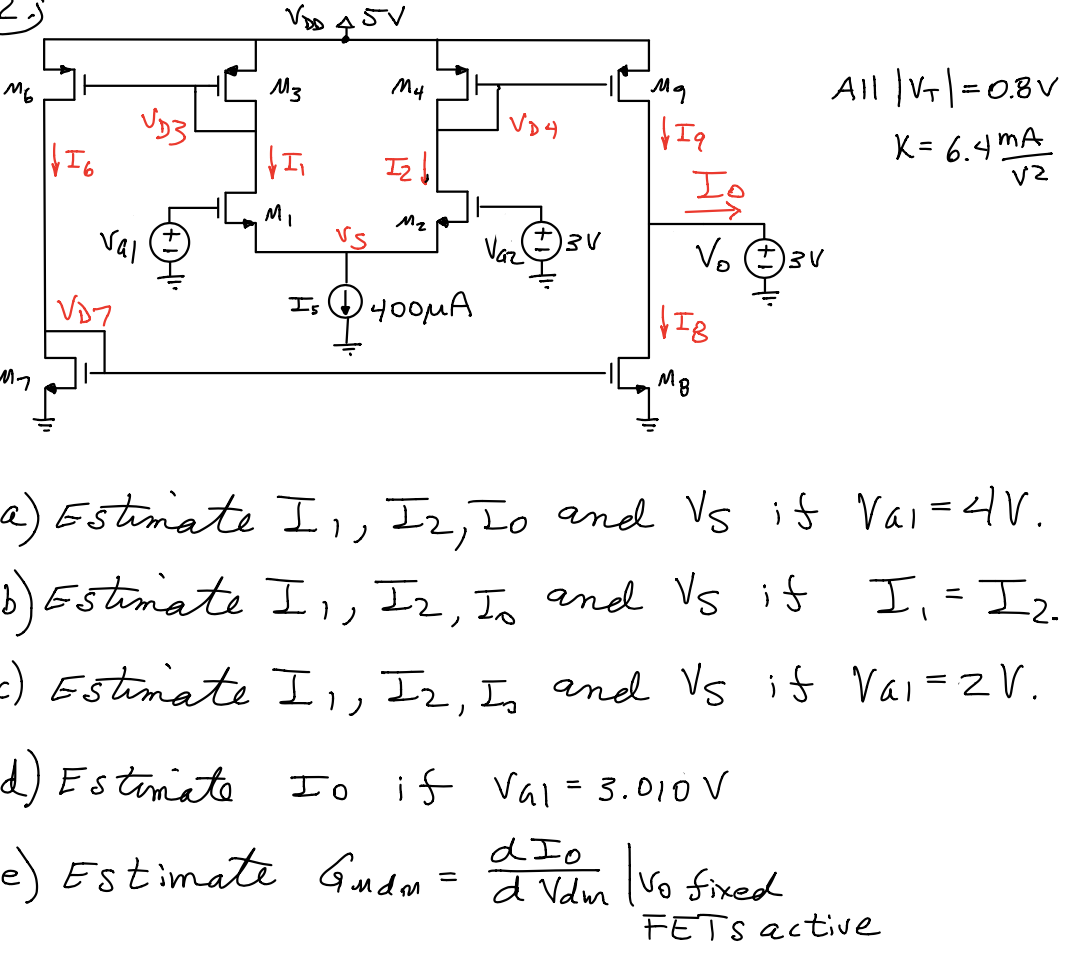 2.)
V_DD 5V
M6 M3 M4 M9
V_D3 V_D4
All |V_T| = 0.8V
K = 6.4 mA/V2
↓I6 ↓I1 I2↓ ↓I9
I0
M1 M2
V_S
V_G1 V_G2 3V
V_0 3V
I_S 400μA
V_D7 ↓I8
M7 M8
a) Estimate I1, I2, I0 and V_S if V_G1 = 4V.
b) Estimate I1, I2, I0 and V_S if I1 = I2.
c) Estimate I1, I2, I0 and V_S if V_G1 = 2V.
d) Estimate I0 if V_G1 = 3.010V
e) Estimate Gmdm = dI0/dVdm | V0 fixed
FETS active